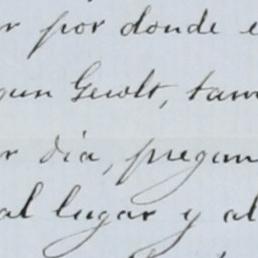 r por donde e
gun Gewlt, tam
r dia, pregun
al lugar y al